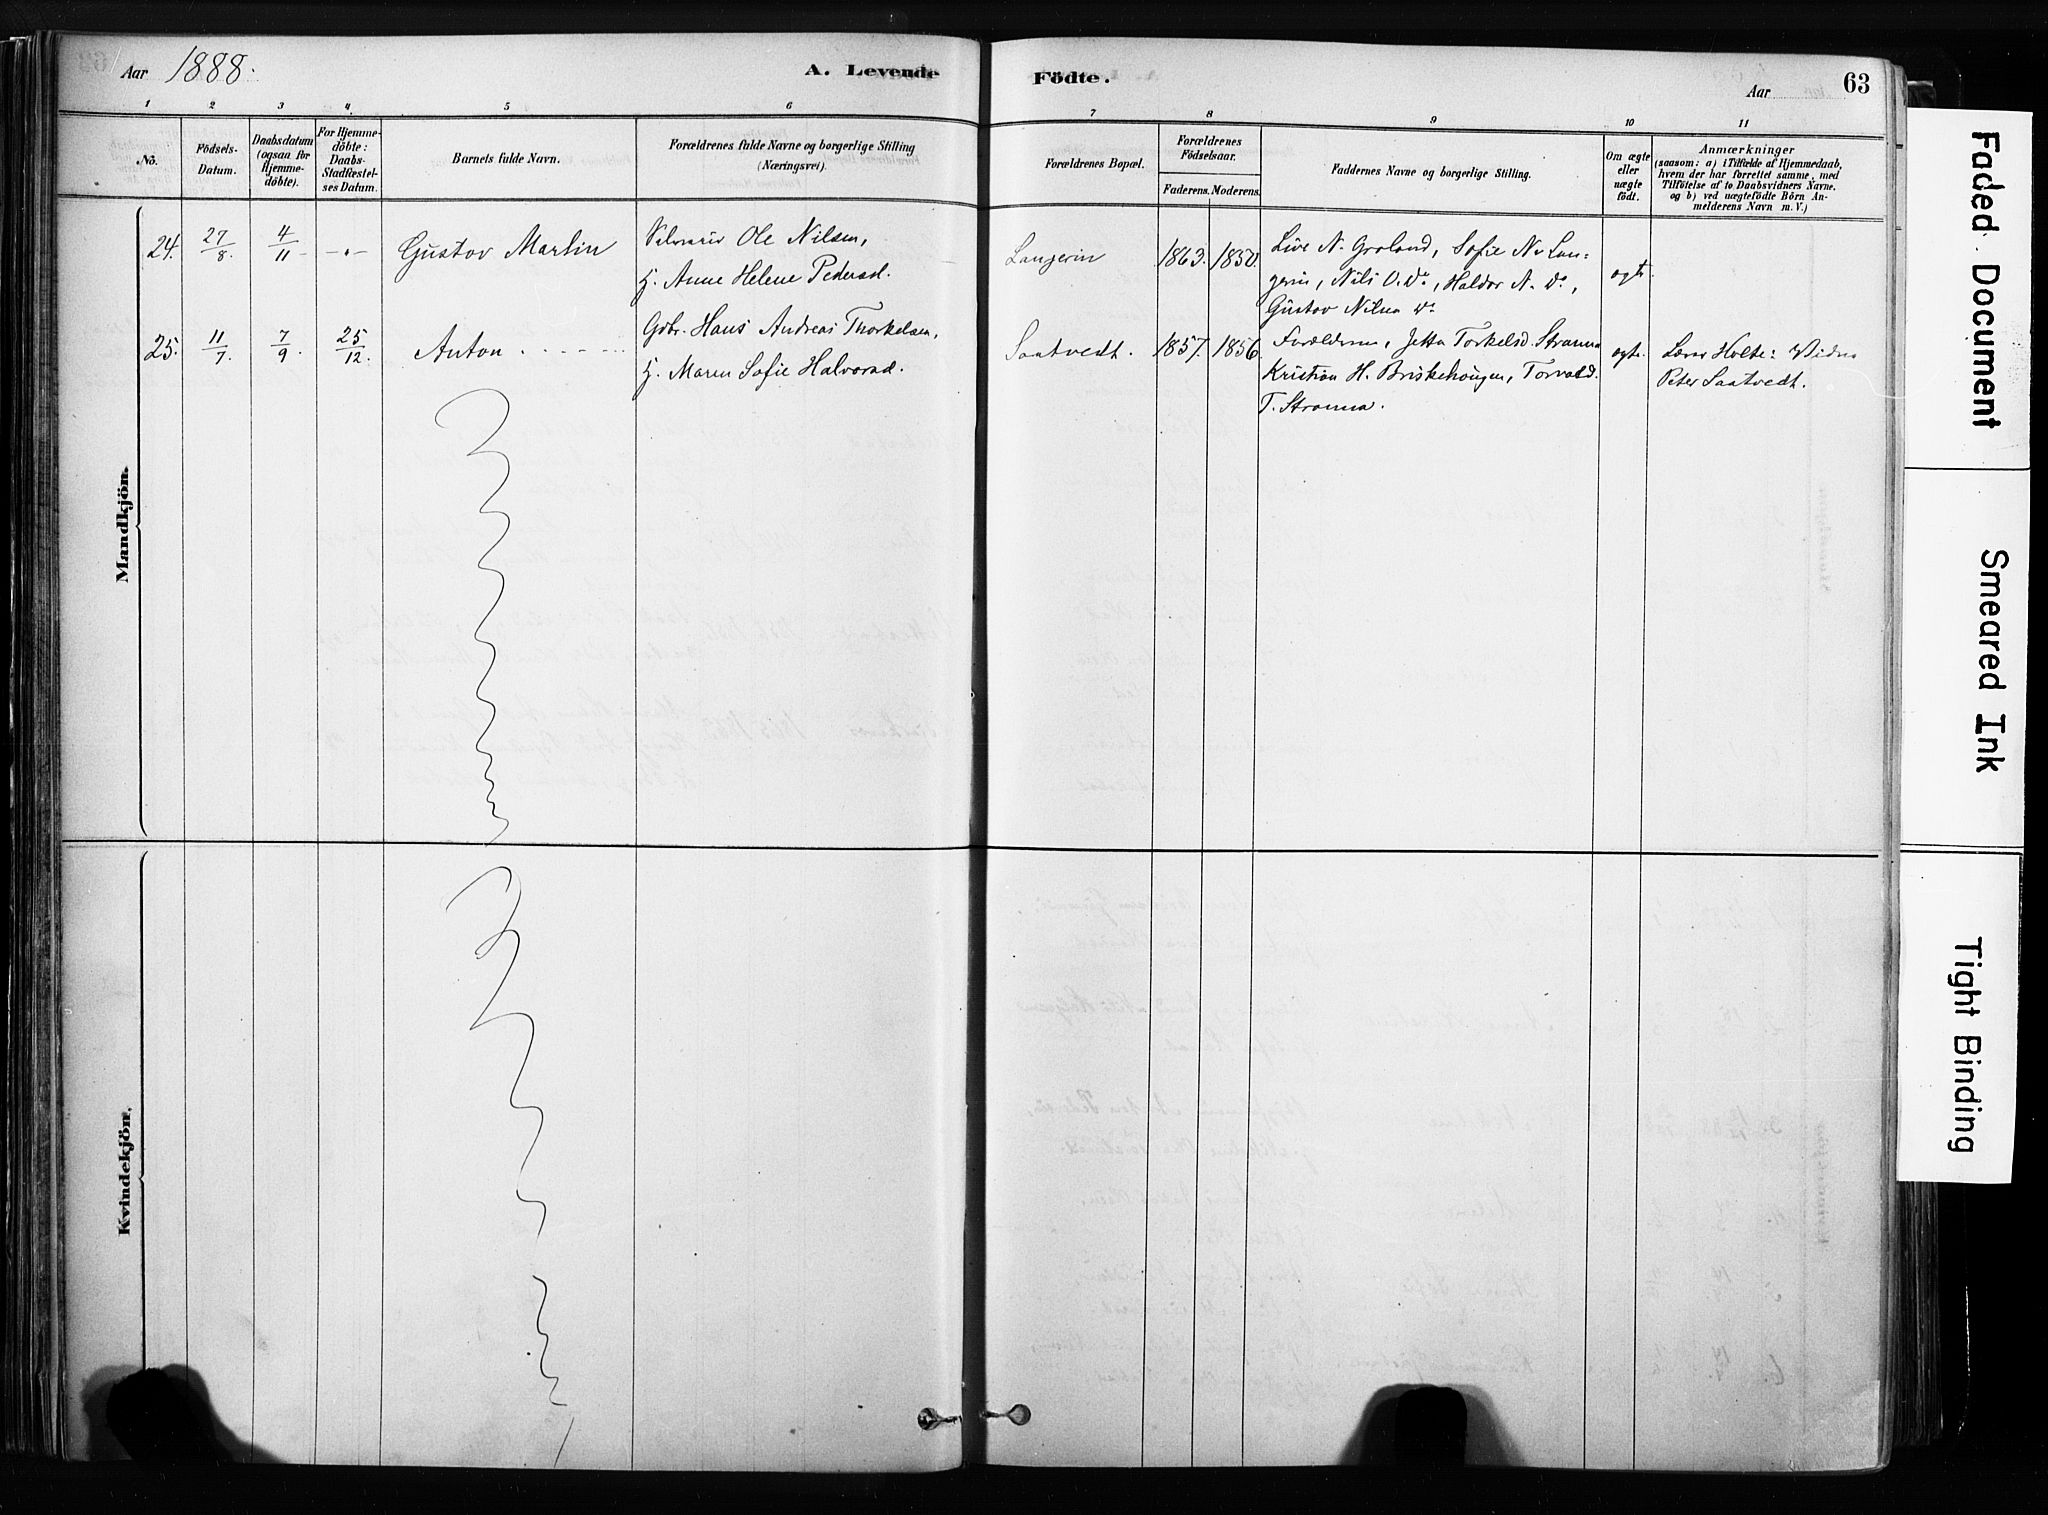 Aar 1888.
A. Levende
Födte.
Aar
63
1 2 3 4 5 6 7 8 9 10 11
No.
Födsels-
Datum.
Daabsdatum
(ogsaa for
Hjemme-
döbte).
For Hjemme-
döbte:
Daabs-
Stadfæstel-
ses Datum.
Barnets fulde Navn.
Forældrenes fulde Navne og borgerlige Stilling
(Næringsvei).
Forældrenes Bopæl.
Forældrenes
Födselsaar.
Faderens. Moderens.
Faddernes Navne og borgerlige Stilling.
Om ægte
eller
uægte
födt.
Anmærkninger
(saasom: a) i Tilfælde af Hjemmedaab,
hvem der har forrettet samme, med
Tilföielse af to Daabsvidners Navne.
og b) ved uægtefödte Börn An-
melderens Navn m. V.)
Mandkjön.
24. 27/8 4/11 -"- Gustov Martin
Selveier Ole Nilsen,
H. Anne Helene Pedersd.
Langerin 1863. 1850.
Live N. Groland, Sofie N. Lan=
gerin, Nils O. Do, Haldor N. Do,
Gustov Nilsen Do
ægte.
25. 11/7 7/9 25/12. Anton
Gbr. Hans Andreas Thorkelsen,
H. Maren Sofie Halvorsd.
Saatvedt. 1857. 1856.
Forældrene, Jetta Torkelsd. Stranna
Kristian H. Briskehougen, Torvald
T. Stranna.
ægte.
Lærer Holte: Vidne
Peter Saatvedt.
Kvindekjön.
Faded Document
Smeared Ink
Tight Binding